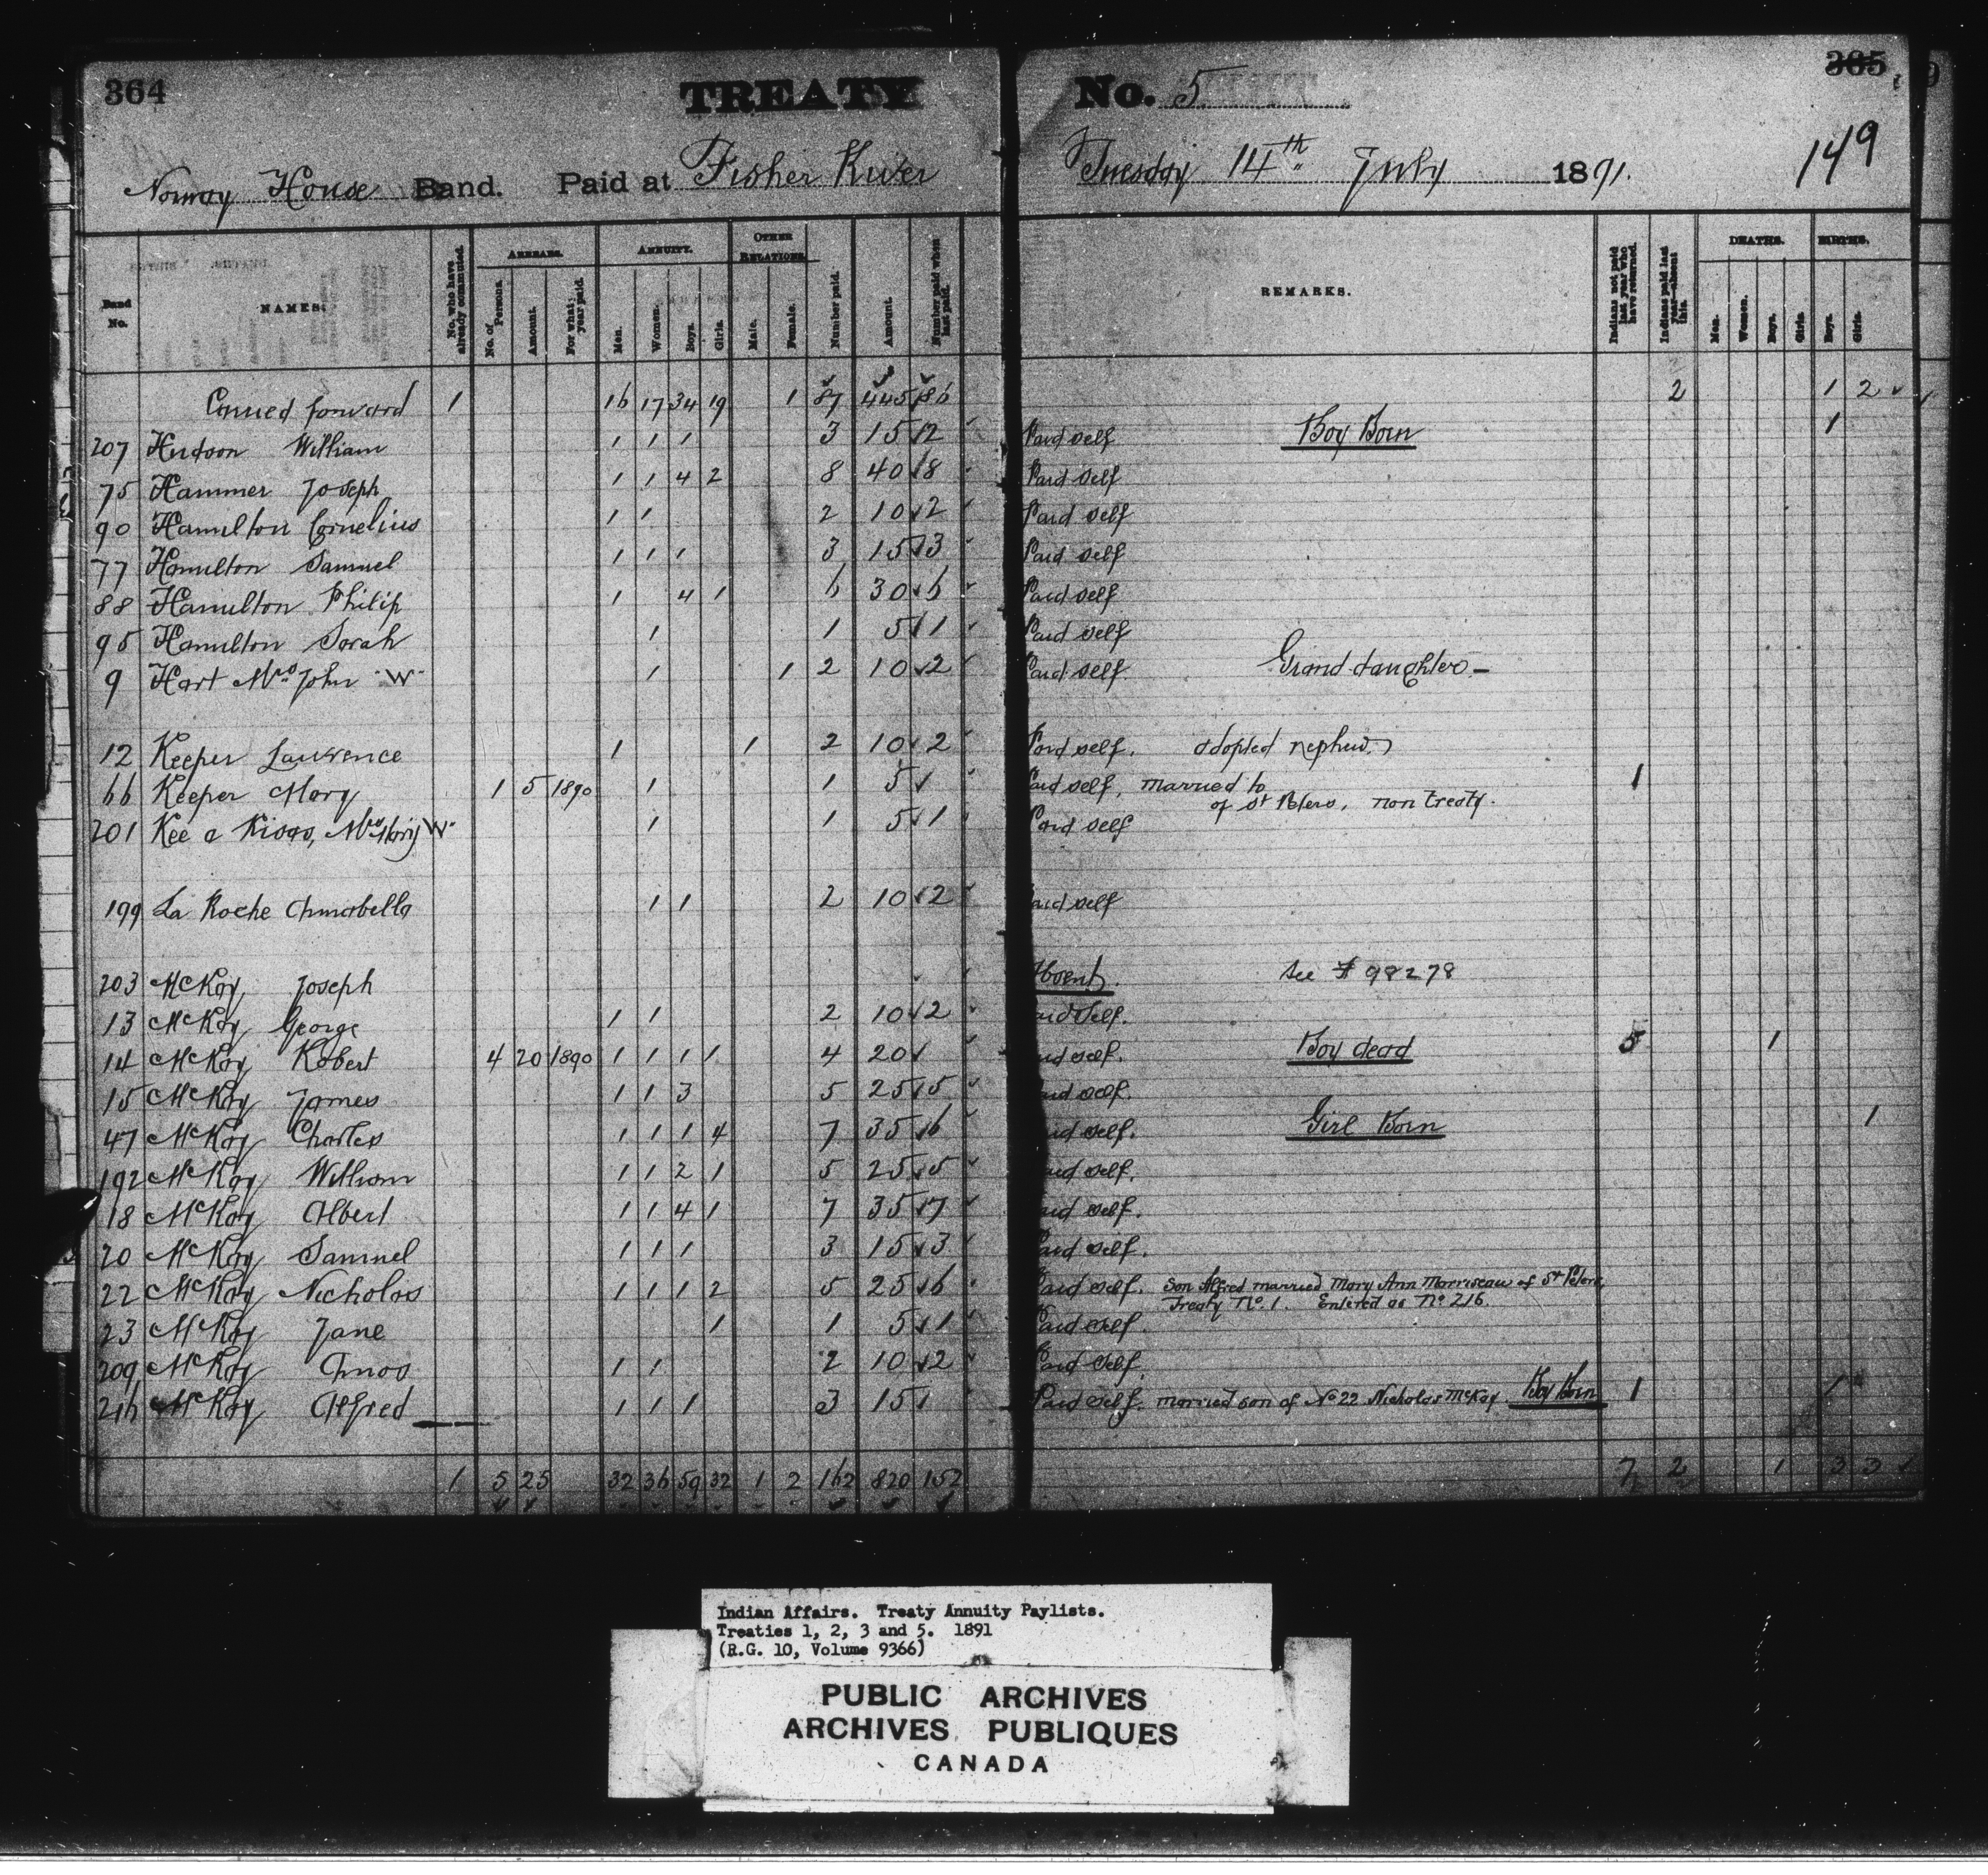 364 TREATY No. 5 365
149
Norway House Band. Paid at Fisher River Tuesday 14th July 1891.
Band No. NAMES. No. who have already commuted. ARREARS. No. of Persons. Amount. For what year paid. ANNUITY. Men. Women. Boys. Girls. OTHER RELATIONS. Male. Female. Number paid. Amount. Number paid when last paid. REMARKS. Indians not paid last year who have returned. Indians paid last year—absent this. DEATHS. Men. Women. Boys. Girls. BIRTHS. Boys. Girls.
Carried forward 1 16 17 34 19 1 87 445 86 2 1 2
207 Hudson William 1 1 1 3 15 2 Paid self Boy Born 1
75 Hammer Joseph 1 1 4 2 8 40 8 Paid self
90 Hamilton Cornelius 1 1 2 10 2 Paid self
77 Hamilton Samuel 1 1 1 3 15 3 Paid self
88 Hamilton Philip 1 4 1 6 30 6 Paid self
95 Hamilton Sarah 1 1 5 1 Paid self
9 Hart Mrs John "W" 1 1 2 10 2 Paid self. Grand daughter
12 Keeper Lawrence 1 1 2 10 2 Paid self. adopted nephew
66 Keeper Mary 1 5 1890 1 1 5 Paid self, married to 1
of St Peters, non treaty.
201 Kee a Kisas, Mrs W" 1 1 5 1 Paid self
199 La Roche Annabella 1 1 2 10 2 Paid self
203 McKay Joseph Absent. See # 98278
13 McKay George 1 1 2 10 2 Paid self.
14 McKay Robert 4 20 1890 1 1 1 1 4 20 Paid self. Boy dead 5 1
15 McKay James 1 1 3 5 25 5 Paid self.
47 McKay Charles 1 1 1 4 7 35 6 Paid self. Girl Born 1
192 McKay William 1 1 2 1 5 25 5 Paid self.
18 McKay Albert 1 1 4 1 7 35 7 Paid self.
20 McKay Samuel 1 1 1 3 15 3 Paid self.
22 McKay Nicholas 1 1 1 2 5 25 6 Paid self. Son Alfred married Mary Ann Morriseau of St Peters
Treaty No. 1. Entered as No 216.
23 McKay Jane 1 1 5 1 Paid self.
209 McKay Amos 1 1 2 10 2 Paid self.
216 McKay Alfred 1 1 1 3 15 Paid self. married son of No 22 Nicholas McKay Boy Born 1 1
1 5 25 32 36 59 32 1 2 162 820 152 7 2 1 3 3
Indian Affairs. Treaty Annuity Paylists.
Treaties 1, 2, 3 and 5. 1891
(R.G. 10, Volume 9366)
PUBLIC ARCHIVES
ARCHIVES PUBLIQUES
CANADA